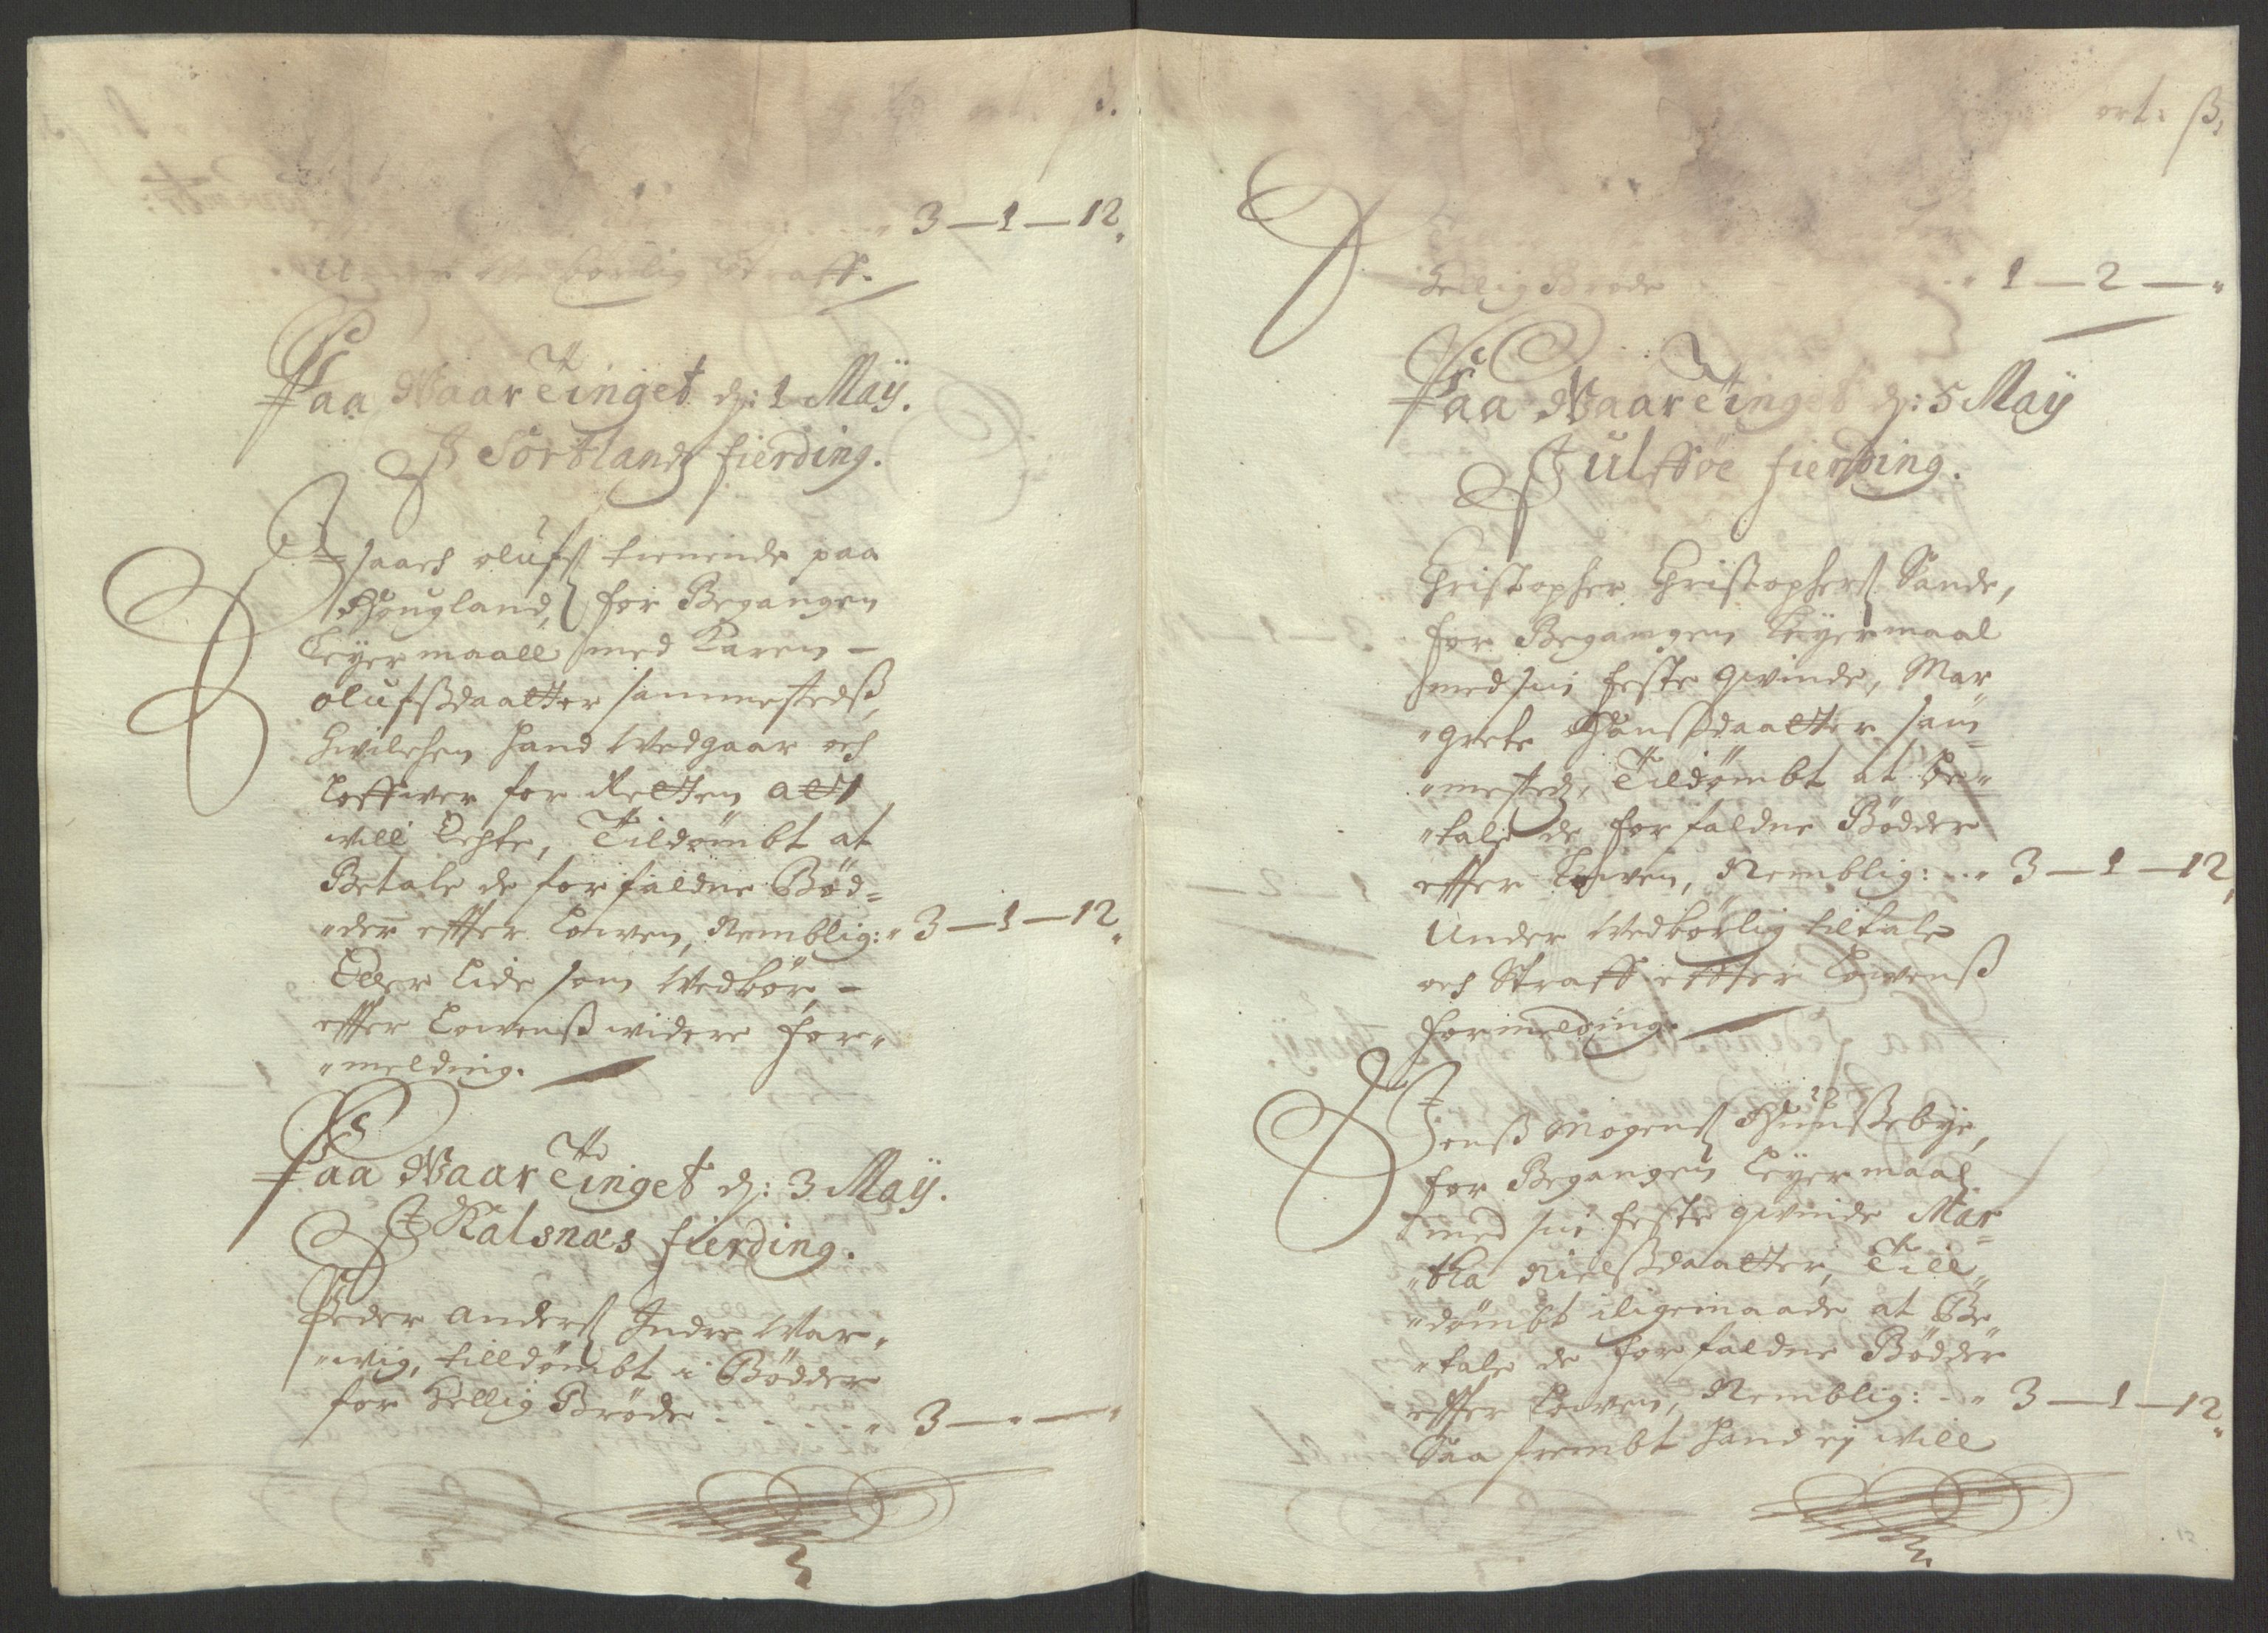 ß.
3 — 1 — 12
Under Vedbörlig Straff.
Paa Waar Tinget dj: 1 Maÿ.
I Sortlandz fierding.
Isaach olufs tienende paa
Hougland, for Begangen
Leÿermaall med Karen –
olufsdaatter sammesteds,
hwilchen hand Wedgaar och
Loffwer for Retten att
will Echte, Tildömbt at
Betale de forfaldne Böd=
"der effter Lowen, Nemblig: 3 — 1 — 12
Eller Lide som Wedbör, –
effter Lowens widere for"
"melding.
Paa Waar Tinget dj: 3 Maÿ.
I Kalsnæs fierding.
Peder anders Indre War"
"wig, tilldömbt i Bödder
for Hellig Bröde . . . . 3 — " — "
ort: ß,
Hellig Bröde 1 — 2 — "
Paa Waar Tinget dj: 5 Maÿ
I ulffsöe fierding.
Christopher Christophers Sande,
for Begangen Leÿermaal
med sin feste qwinde, Mar"
"grete Hansdaatter sam=
"mestedz, Tildömbt at be"
"tale de forfaldne Bödder
effter Lowen, Nemblig: 3 — 1 — 12
Under Wedbörlig tiltale
och Straff effter Lowens
formelding.
Jens Mogens Hunssebye,
for Begangen Leÿermaal
med sin feste qwinde Mar=
"tha Nielsdaatter, Till"
"dömbt iligemaade at Be"
"tale de forfaldne Bödder
effter Lowen, Nemblig: 3 — 1 — 12
Saa frembt hand ej will